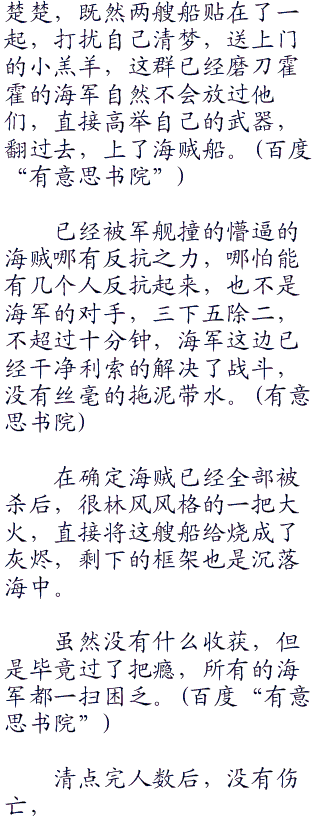 楚楚，既然两艘船贴在了一
起，打扰自己清梦，送上门
的小羔羊，这群已经磨刀霍
霍的海军自然不会放过他
们，直接高举自己的武器，
翻过去，上了海贼船。(百度
“有意思书院”)
已经被军舰撞的懵逼的
海贼哪有反抗之力，哪怕能
有几个人反抗起来，也不是
海军的对手，三下五除二，
不超过十分钟，海军这边已
经干净利索的解决了战斗，
没有丝毫的拖泥带水。(有意
思书院)
在确定海贼已经全部被
杀后，很林风风格的一把大
火，直接将这艘船给烧成了
灰烬，剩下的框架也是沉落
海中。
虽然没有什么收获，但
是毕竟过了把瘾，所有的海
军都一扫困乏。(百度“有意
思书院”)
清点完人数后，没有伤
亡，